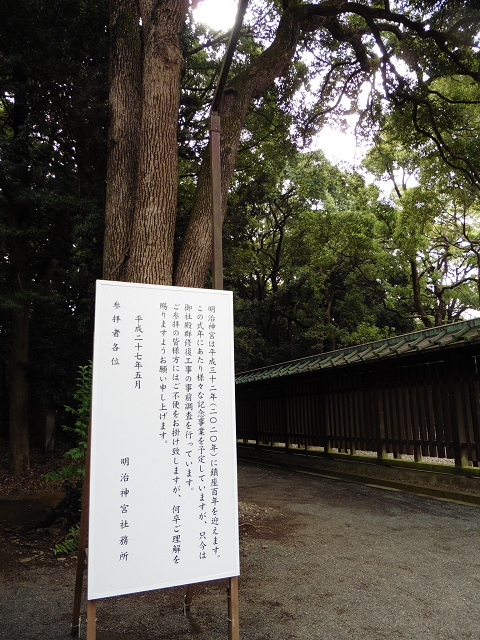 明治神宮は平成三十二年（二〇二〇年）に鎮座百年を迎えます。
この式年にあたり様々な記念事業を予定していますが、只今は
御社殿群修復工事の事前調査を行っています。
ご参拝の皆様方にはご不便をお掛け致しますが、何卒ご理解を
賜りますようお願い申し上げます。
平成二十七年五月
明治神宮社務所
参拝者各位